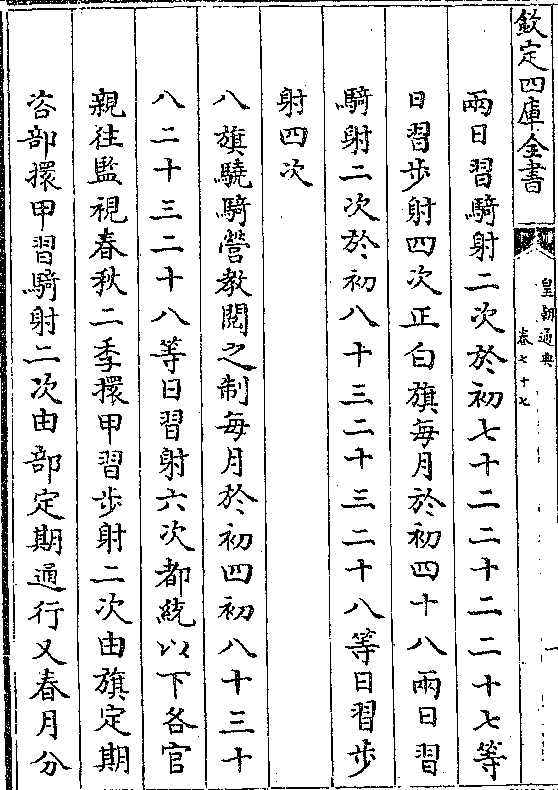 欽定四庫全書
皇朝通典
卷七十七
兩日習騎射二次於初七十二二十二二十七等
日習步射四次正白旗每月於初四十八兩日習
騎射二次於初八十三二十三二十八等日習步
射四次
八旗驍騎營教閱之制每月於初四初八十三十
八二十三二十八等日習射六次都統以下各官
親往監視春秋二季擐甲習步射二次由旗定期
咨部擐甲習騎射二次由部定期通行又春月分